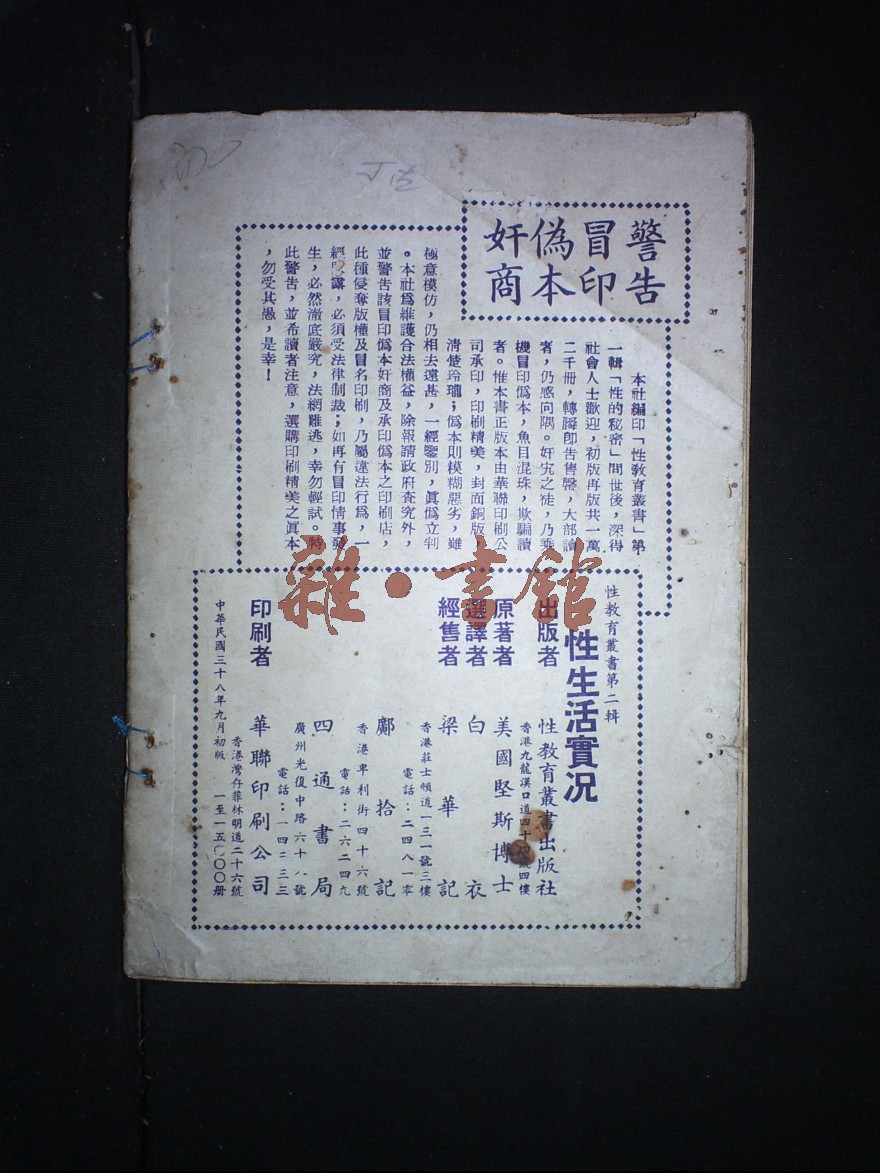 警告
冒印
偽本
奸商
本社編印「性教育叢書」第
一輯「性的秘密」問世後，深得
社會人士歡迎，初版再版共一萬
二千冊，轉瞬卽告售罄，大部讀
者，仍感向隅。奸宄之徒，乃乘
機冒印偽本，魚目混珠，欺騙讀
者。惟本書正版本由華聯印刷公
司承印，印刷精美，封面銅版，
清楚玲瓏；偽本則模糊惡劣，雖
極意模仿，仍相去遠甚，一經鑒別，眞偽立判
。本社爲維護合法權益，除報請政府查究外，
並警告該冒印偽本奸商及承印偽本之印刷店，
此種侵奪版權及冒名印刷，乃屬違法行爲，一
經 露，必須受法律制裁；如再有冒印情事發
生，必然澈底嚴究，法網難逃，幸勿輕試。特
此警告，並希讀者注意，選購印刷精美之眞本
，勿受其愚，是幸！
性教育叢書第二輯
性生活實況
出版者 性教育叢書出版社
香港九龍漢口道四十 號四樓
原著者 美國堅斯博士
選譯者 白衣
經售者 梁華記
香港莊士頓道一三一號三樓
電話：二四八一零
鄺拾記
香港卑利街四十六號
電話：二六二四九
四通書局
廣州光復中路六十八號
電話：一四三三三
印刷者 華聯印刷公司
香港灣仔菲林明道二十六號
中華民國三十八年九月初版 一至一五〇〇〇册
雜·書館